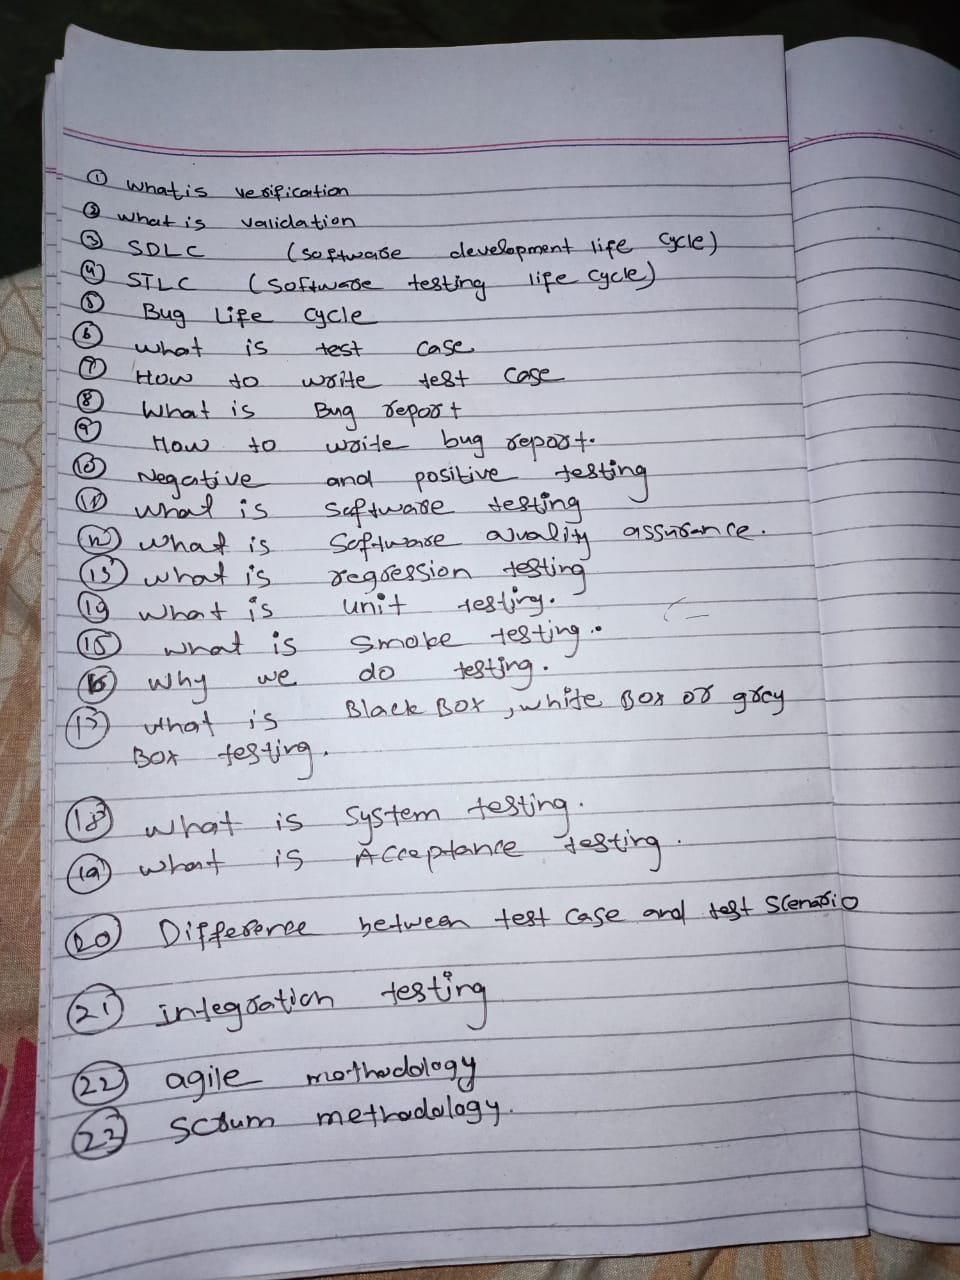 ① What is verification
② What is validation
③ SDLC (software development life cycle)
④ STLC (Software testing life cycle)
⑤ Bug Life cycle
⑥ what is test case
⑦ How to write test case
⑧ What is Bug report
⑨ How to write bug report.
⑩ Negative and positive testing
⑪ what is software testing
⑫ what is Software quality assurance.
⑬ what is regression testing
⑭ what is unit testing.
⑮ what is smoke testing.
⑯ why we do testing.
⑰ what is Black Box, white Box or grey
Box testing.
⑱ what is System testing.
⑲ what is Acceptance testing.
⑳ Difference between test case and test Scenario
㉑ integration testing
㉒ agile mothodology
㉓ scrum methodology.